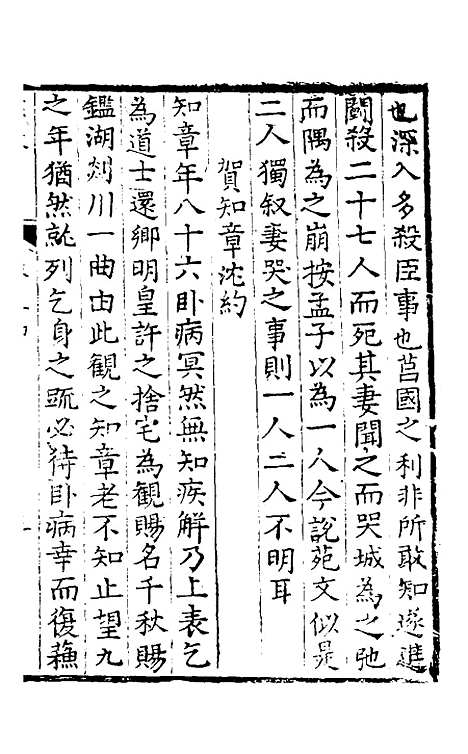 也深入多殺臣事也莒國之利非所敢知遂進
鬭殺二十七人而死其妻聞之而哭城為之阤
而隅為之崩按孟子以為一人今說苑文似是
二人獨叙妻哭之事則一人二人不明耳
賀知章沈約
知章年八十六卧病冥然無知疾觧乃上表乞
為道士還鄉明皇許之捨宅為觀賜名千秋賜
鑑湖剡川一曲由此觀之知章老不知止望九
之年猶然就列乞身之䟽必待卧病幸而復蘓